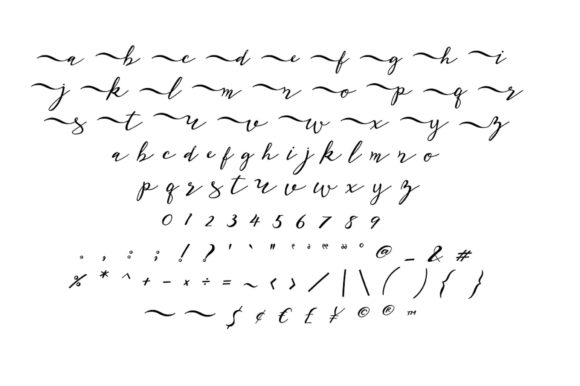 a b c d e f g h i
j k l m n o p q r
s t u v w x y z
a b c d e f g h i j k l m n o
p q r s t u v w x y z
0 1 2 3 4 5 6 7 8 9
. , : ; ! ? ' ` " @ _ & #
% * ^ + - × ÷ = ~ < > / | \ ( ) { }
~ ~ $ ¢ € £ ¥ © ® ™